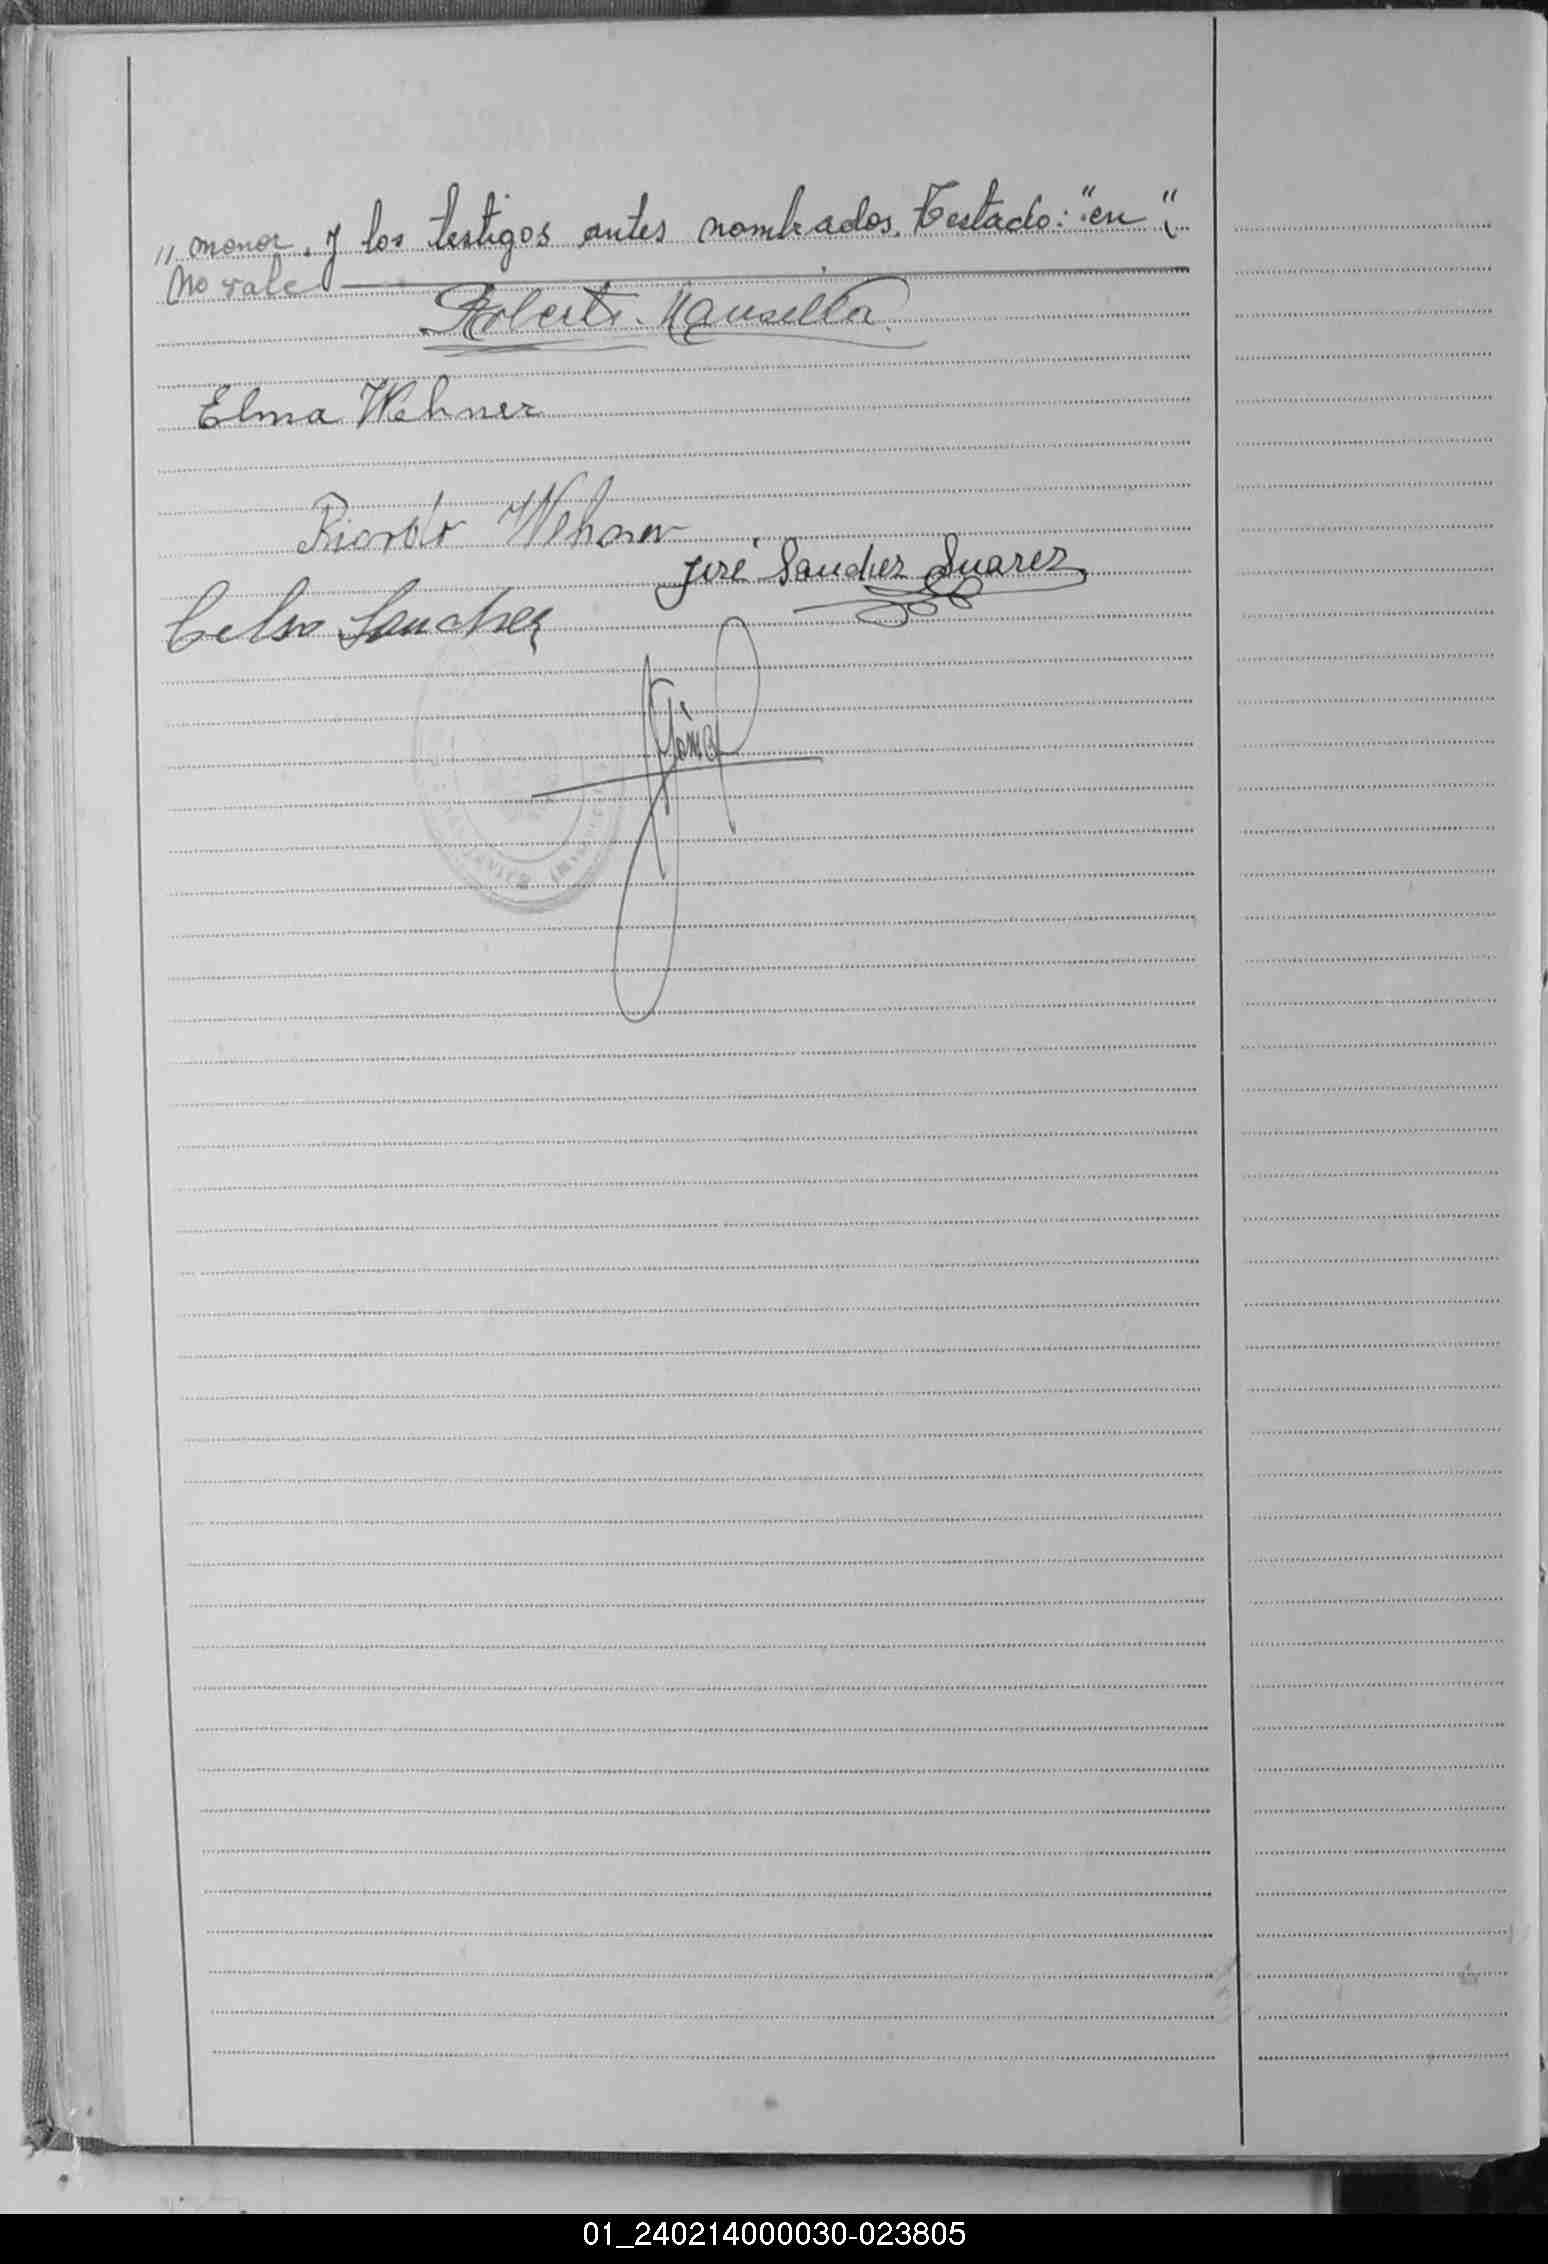 „ menor. y los testigos antes nombrados. Testado: "en".
No vale
Roberto Mansilla
Elma Wehner
Ricardo Wehner
José Sanchez Suarez
Celso Sanchez
01_240214000030-023805